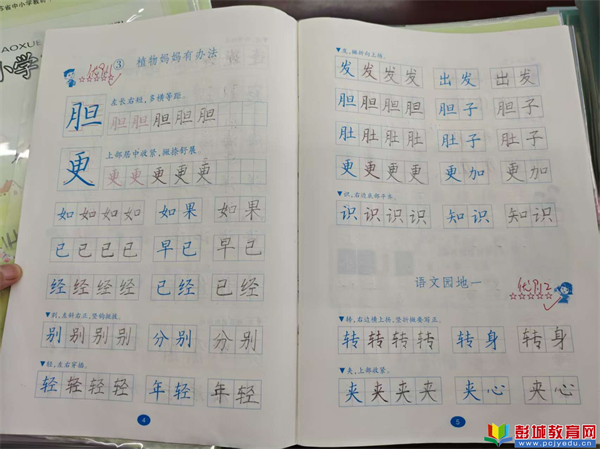 省中小学教
AOXUE
小学
③ 植物妈妈有办法
左长右短，多横等距。
胆 胆 胆 胆 胆 胆
上部居中收紧，撇捺舒展。
更 更 更 更 更 更
如 如 如 如 如果 如果
已 已 已 已 早已 早已
经 经 经 经 已经 已经
▼别，左斜右正，竖钩挺拔。
别 别 别 别 分别 分别
▼轻，左右穿插。
轻 轻 轻 轻 年轻 年轻
4
发 发 发 发 出发 出发
胆 胆 胆 胆 胆子 胆子
肚 肚 肚 肚 肚子 肚子
更 更 更 更 更加 更加
识 识 识 识 知识 知识
语文园地一
▼转，右边横上扬，竖折撇要写正。
转 转 转 转 转身 转身
▼夹，上部收紧。
夹 夹 夹 夹 夹心 夹心
5
彭城教育网